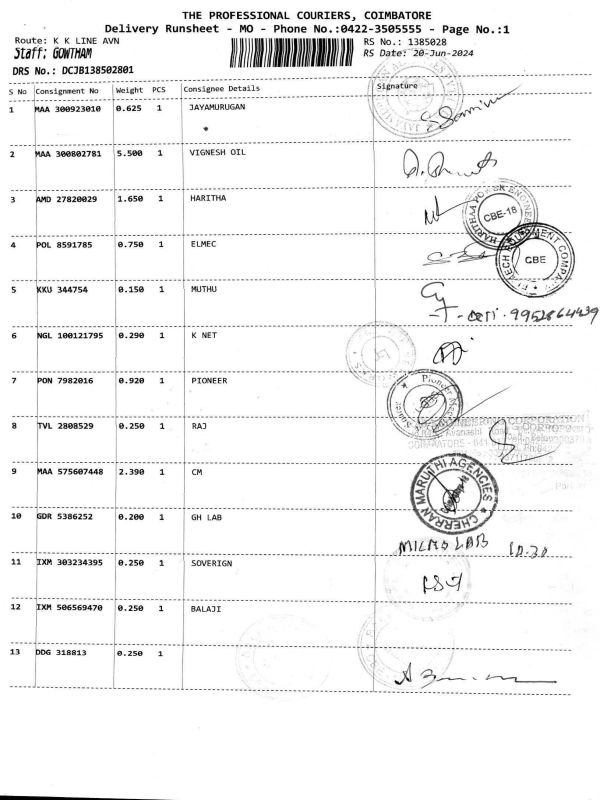 THE PROFESSIONAL COURIERS, COIMBATORE
Delivery Runsheet - MO - Phone No.:0422-3505555 - Page No.:1
Route: K K LINE AVN
RS No.: 1385028
Staff: GOWTHAM
RS Date: 20-Jun-2024
DRS No.: DCJB138502801
S No Consignment No Weight PCS Consignee Details Signature
1 MAA 300923010 0.625 1 JAYAMURUGAN
2 MAA 300802781 5.500 1 VIGNESH OIL
3 AMD 27820029 1.650 1 HARITHA
HARITHAA POWER ENGINEER
CBE-18
4 POL 8591785 0.750 1 ELMEC
EQUIPMENT COMPANY
CBE
5 KKU 344754 0.150 1 MUTHU
9952864439
6 NGL 100121795 0.290 1 K NET
7 PON 7982016 0.920 1 PIONEER
Pioneer
8 TVL 2808529 0.250 1 RAJ
CORPORATION
9 MAA 575607448 2.390 1 CM
CHERRAN MARUTHI AGENCIES
10 GDR 5386252 0.200 1 GH LAB
MICRO LAB 10.30
11 IXM 303234395 0.250 1 SOVERIGN
12 IXM 506569470 0.250 1 BALAJI
13 DDG 318813 0.250 1